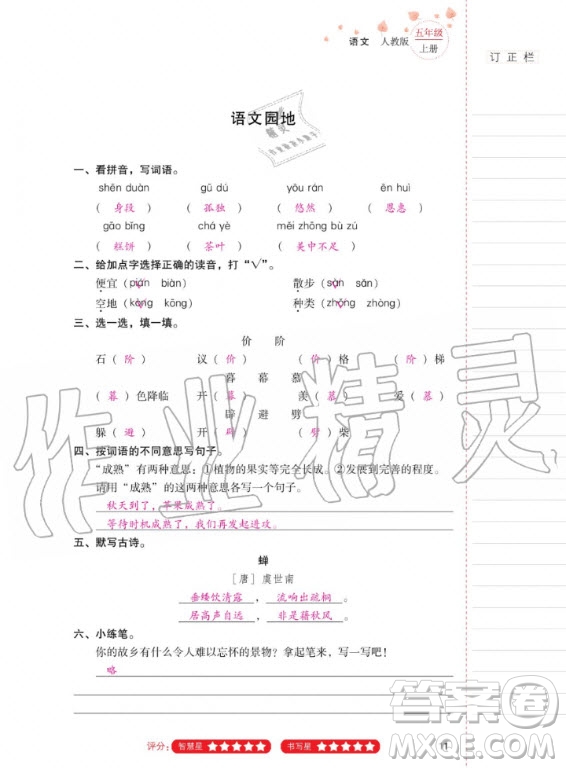 语文 人教版 五年级
上册
订正栏
语文园地
一、看拼音，写词语。
shēn duàn gū dú yōu rán ēn huì
（身段）（孤独）（悠然）（恩惠）
gāo bǐng chá yè měi zhōng bù zú
（糕饼）（茶叶）（美中不足）
二、给加点字选择正确的读音，打“√”。
便宜（pián biàn） 散步（sàn sǎn）
空地（kòng kōng） 种类（zhǒng zhòng）
三、选一选，填一填。
价 阶
石（阶） 议（价） （价）格 （阶）梯
暮 幕 慕
（暮）色降临 开（幕） 羡（慕） 爱（慕）
辟 避 劈
躲（避） 开（辟） （劈）柴
四、按词语的不同意思写句子。
“成熟”有两种意思：①植物的果实等完全长成。②发展到完善的程度。
请用“成熟”的这两种意思各写一个句子。
秋天到了，苹果成熟了。
等待时机成熟了，我们再发起进攻。
五、默写古诗。
蝉
［唐］虞世南
垂緌饮清露，流响出疏桐。
居高声自远，非是藉秋风。
六、小练笔。
你的故乡有什么令人难以忘怀的景物？拿起笔来，写一写吧！
略
评分：智慧星 ★★★★★ 书写星 ★★★★★
11
作业精灵
作业精灵